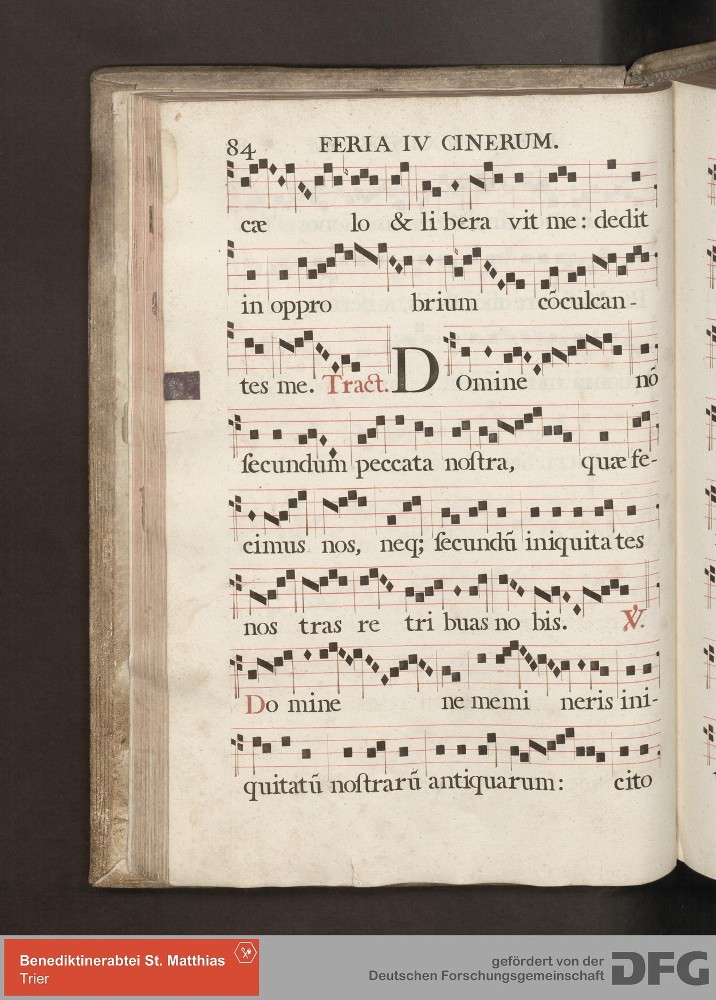 84 FERIA IV CINERUM.
cæ lo & li bera vit me: dedit
in oppro brium cõculcan-
tes me. Tract. DOmine nõ
ſecundum peccata noſtra, quæ fe-
cimus nos, neq; ſecundũ iniquita tes
nos tras re tri buas no bis. ℣.
Do mine ne memi neris ini-
quitatũ noſtrarũ antiquarum: cito
Benediktinerabtei St. Matthias
Trier
gefördert von der
Deutschen Forschungsgemeinschaft DFG